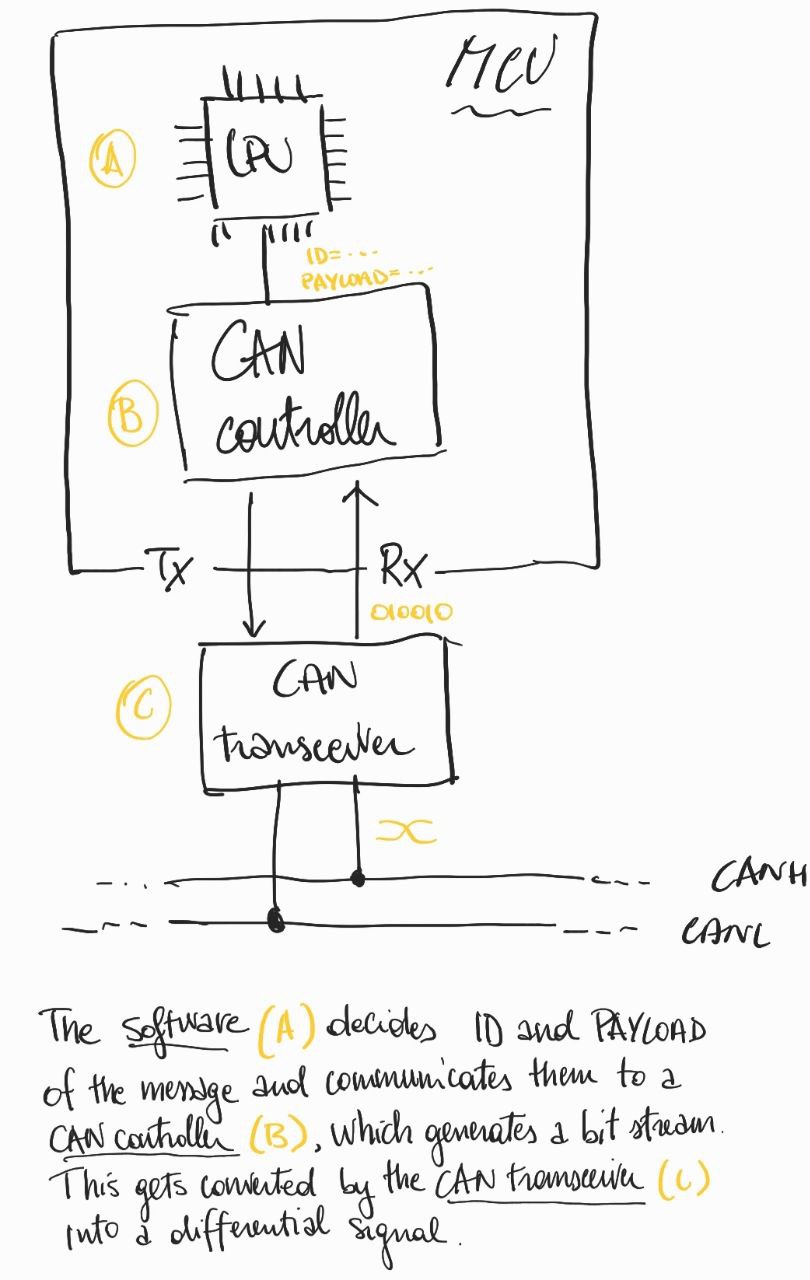 MCU
CPU
A
ID=...
PAYLOAD=...
CAN
controller
B
Tx
Rx
010010
CAN
transceiver
C
CANH
CANL
The software (A) decides ID and PAYLOAD
of the message and communicates them to a
CAN controller (B), which generates a bit stream.
This gets converted by the CAN transceiver (C)
into a differential signal.